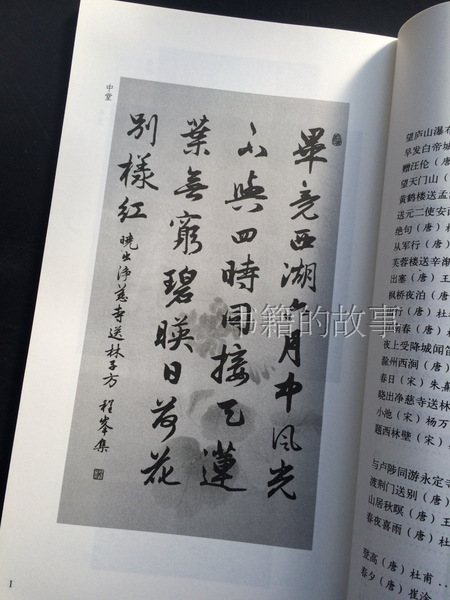 中堂
畢竟西湖六月中風光
不與四時同接天蓮
葉無窮碧暎日荷花
別樣紅
曉出淨慈寺送林子方 程峯集
书籍的故事
1
望庐山瀑布
早发白帝城
赠汪伦（唐）
望天门山（
黄鹤楼送孟
送元二使安
绝句（唐）杜
从军行（唐）
芙蓉楼送辛渐
出塞（唐）王
枫桥夜泊（唐
行（唐）杜
春（唐）
夜上受降城闻笛
滁州西涧（唐）
春日（宋）朱熹
晓出净慈寺送林
小池（宋）杨万
题西林壁（宋）
与卢陟同游永定寺
渡荆门送别（唐）
山居秋暝（唐）王
春夜喜雨（唐）杜
登高（唐）杜甫
春夕（唐）崔涂